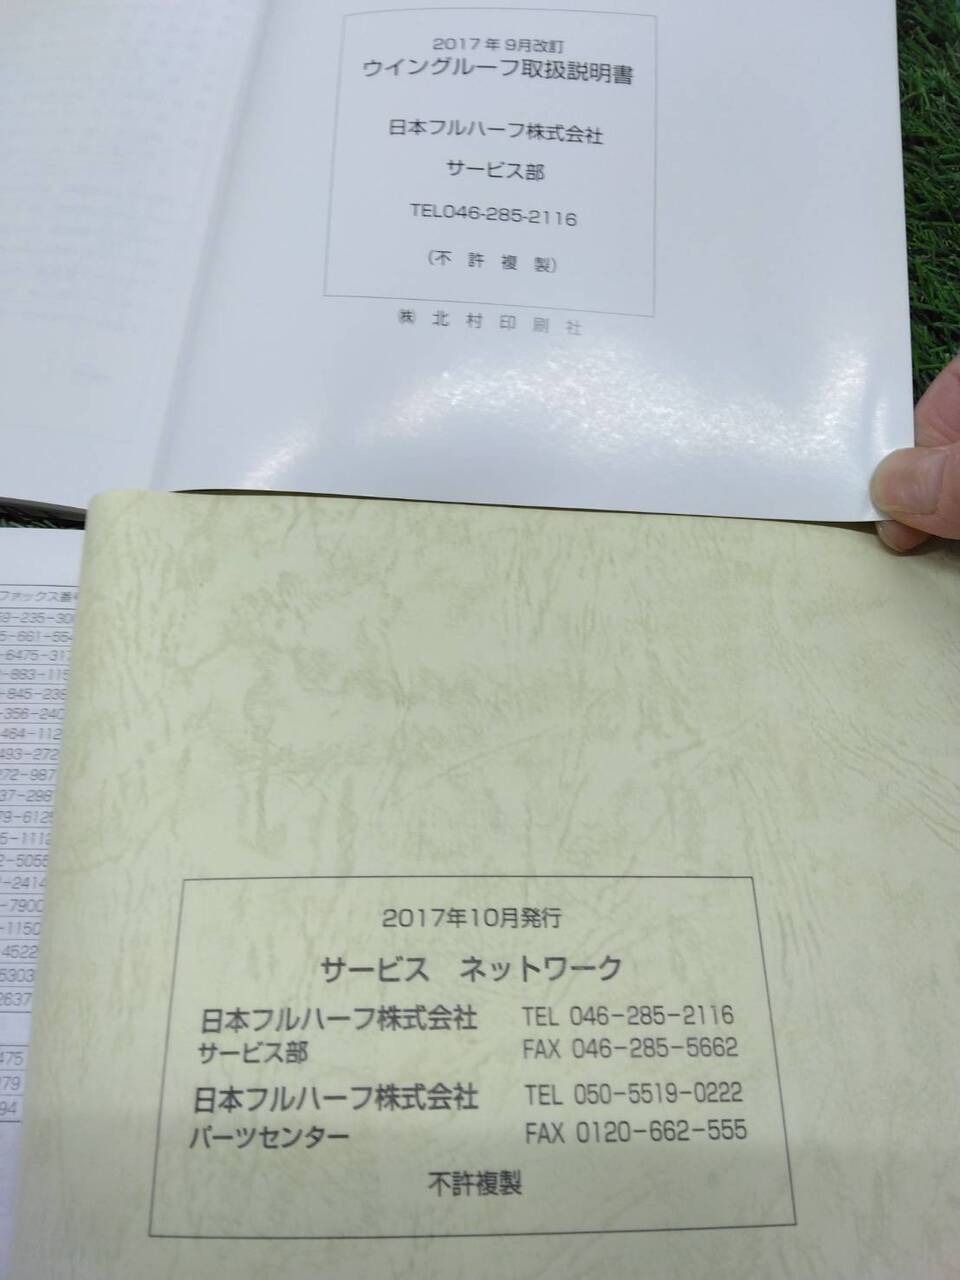 2017年9月改訂
ウイングルーフ取扱説明書
日本フルハーフ株式会社
サービス部
TEL046-285-2116
(不許複製)
㈱北村印刷社
ファックス番
-235-
-661-
-6475-
-883-
-845-
-356-
-464-
-5055
-2414
-7900
-1150
-4522
5303
2637
475
279
94
2017年10月発行
サービス ネットワーク
日本フルハーフ株式会社 TEL 046-285-2116
サービス部 FAX 046-285-5662
日本フルハーフ株式会社 TEL 050-5519-0222
パーツセンター FAX 0120-662-555
不許複製